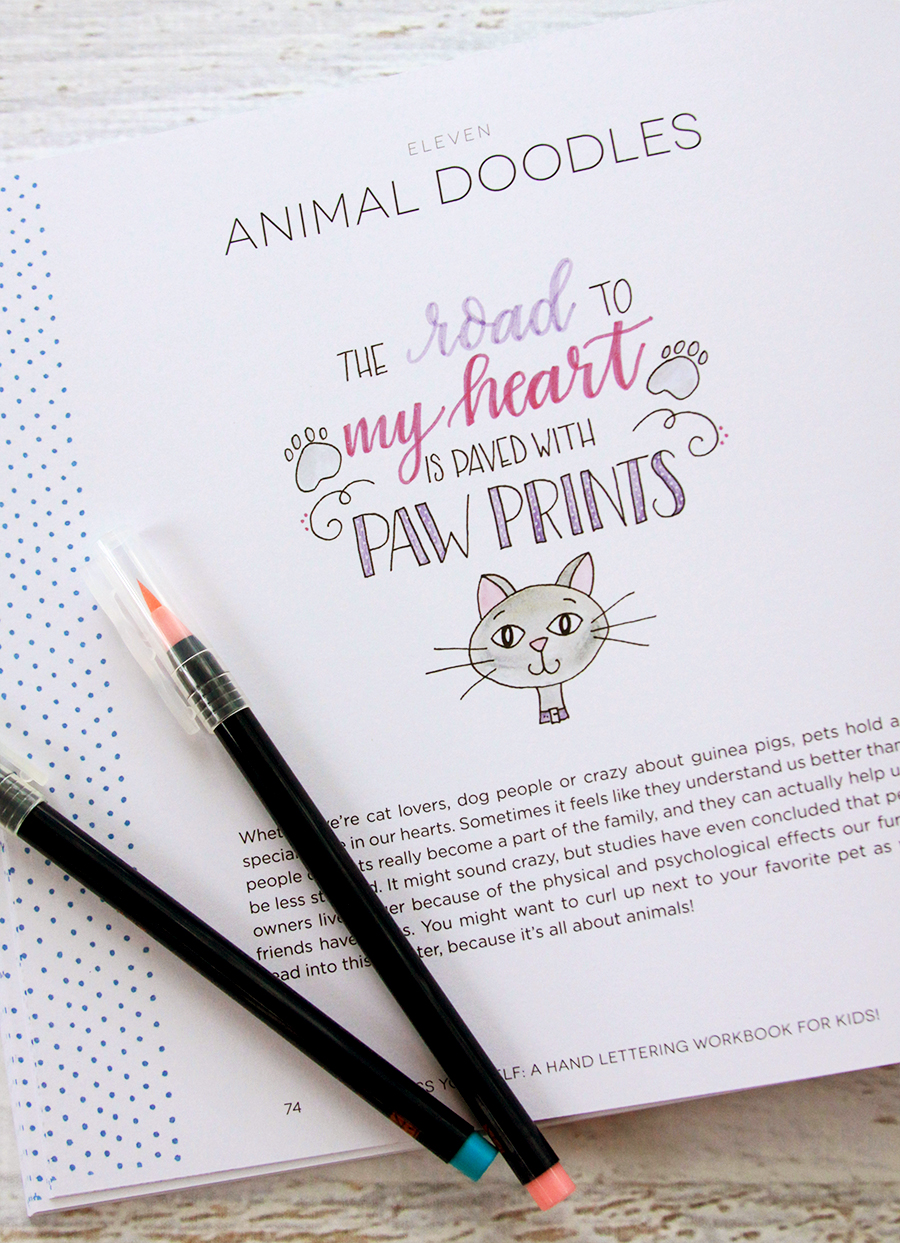 ELEVEN
ANIMAL DOODLES
THE road TO
my heart
IS PAVED WITH
PAW PRINTS
we're cat lovers, dog people or crazy about guinea pigs, pets hold a
special in our hearts. Sometimes it feels like they understand us better than
people really become a part of the family, and they can actually help
be less It might sound crazy, but studies have even concluded that
owners because of the physical and psychological effects our
friends have You might want to curl up next to your favorite pet as
into this because it's all about animals!
A HAND LETTERING WORKBOOK FOR KIDS!
74